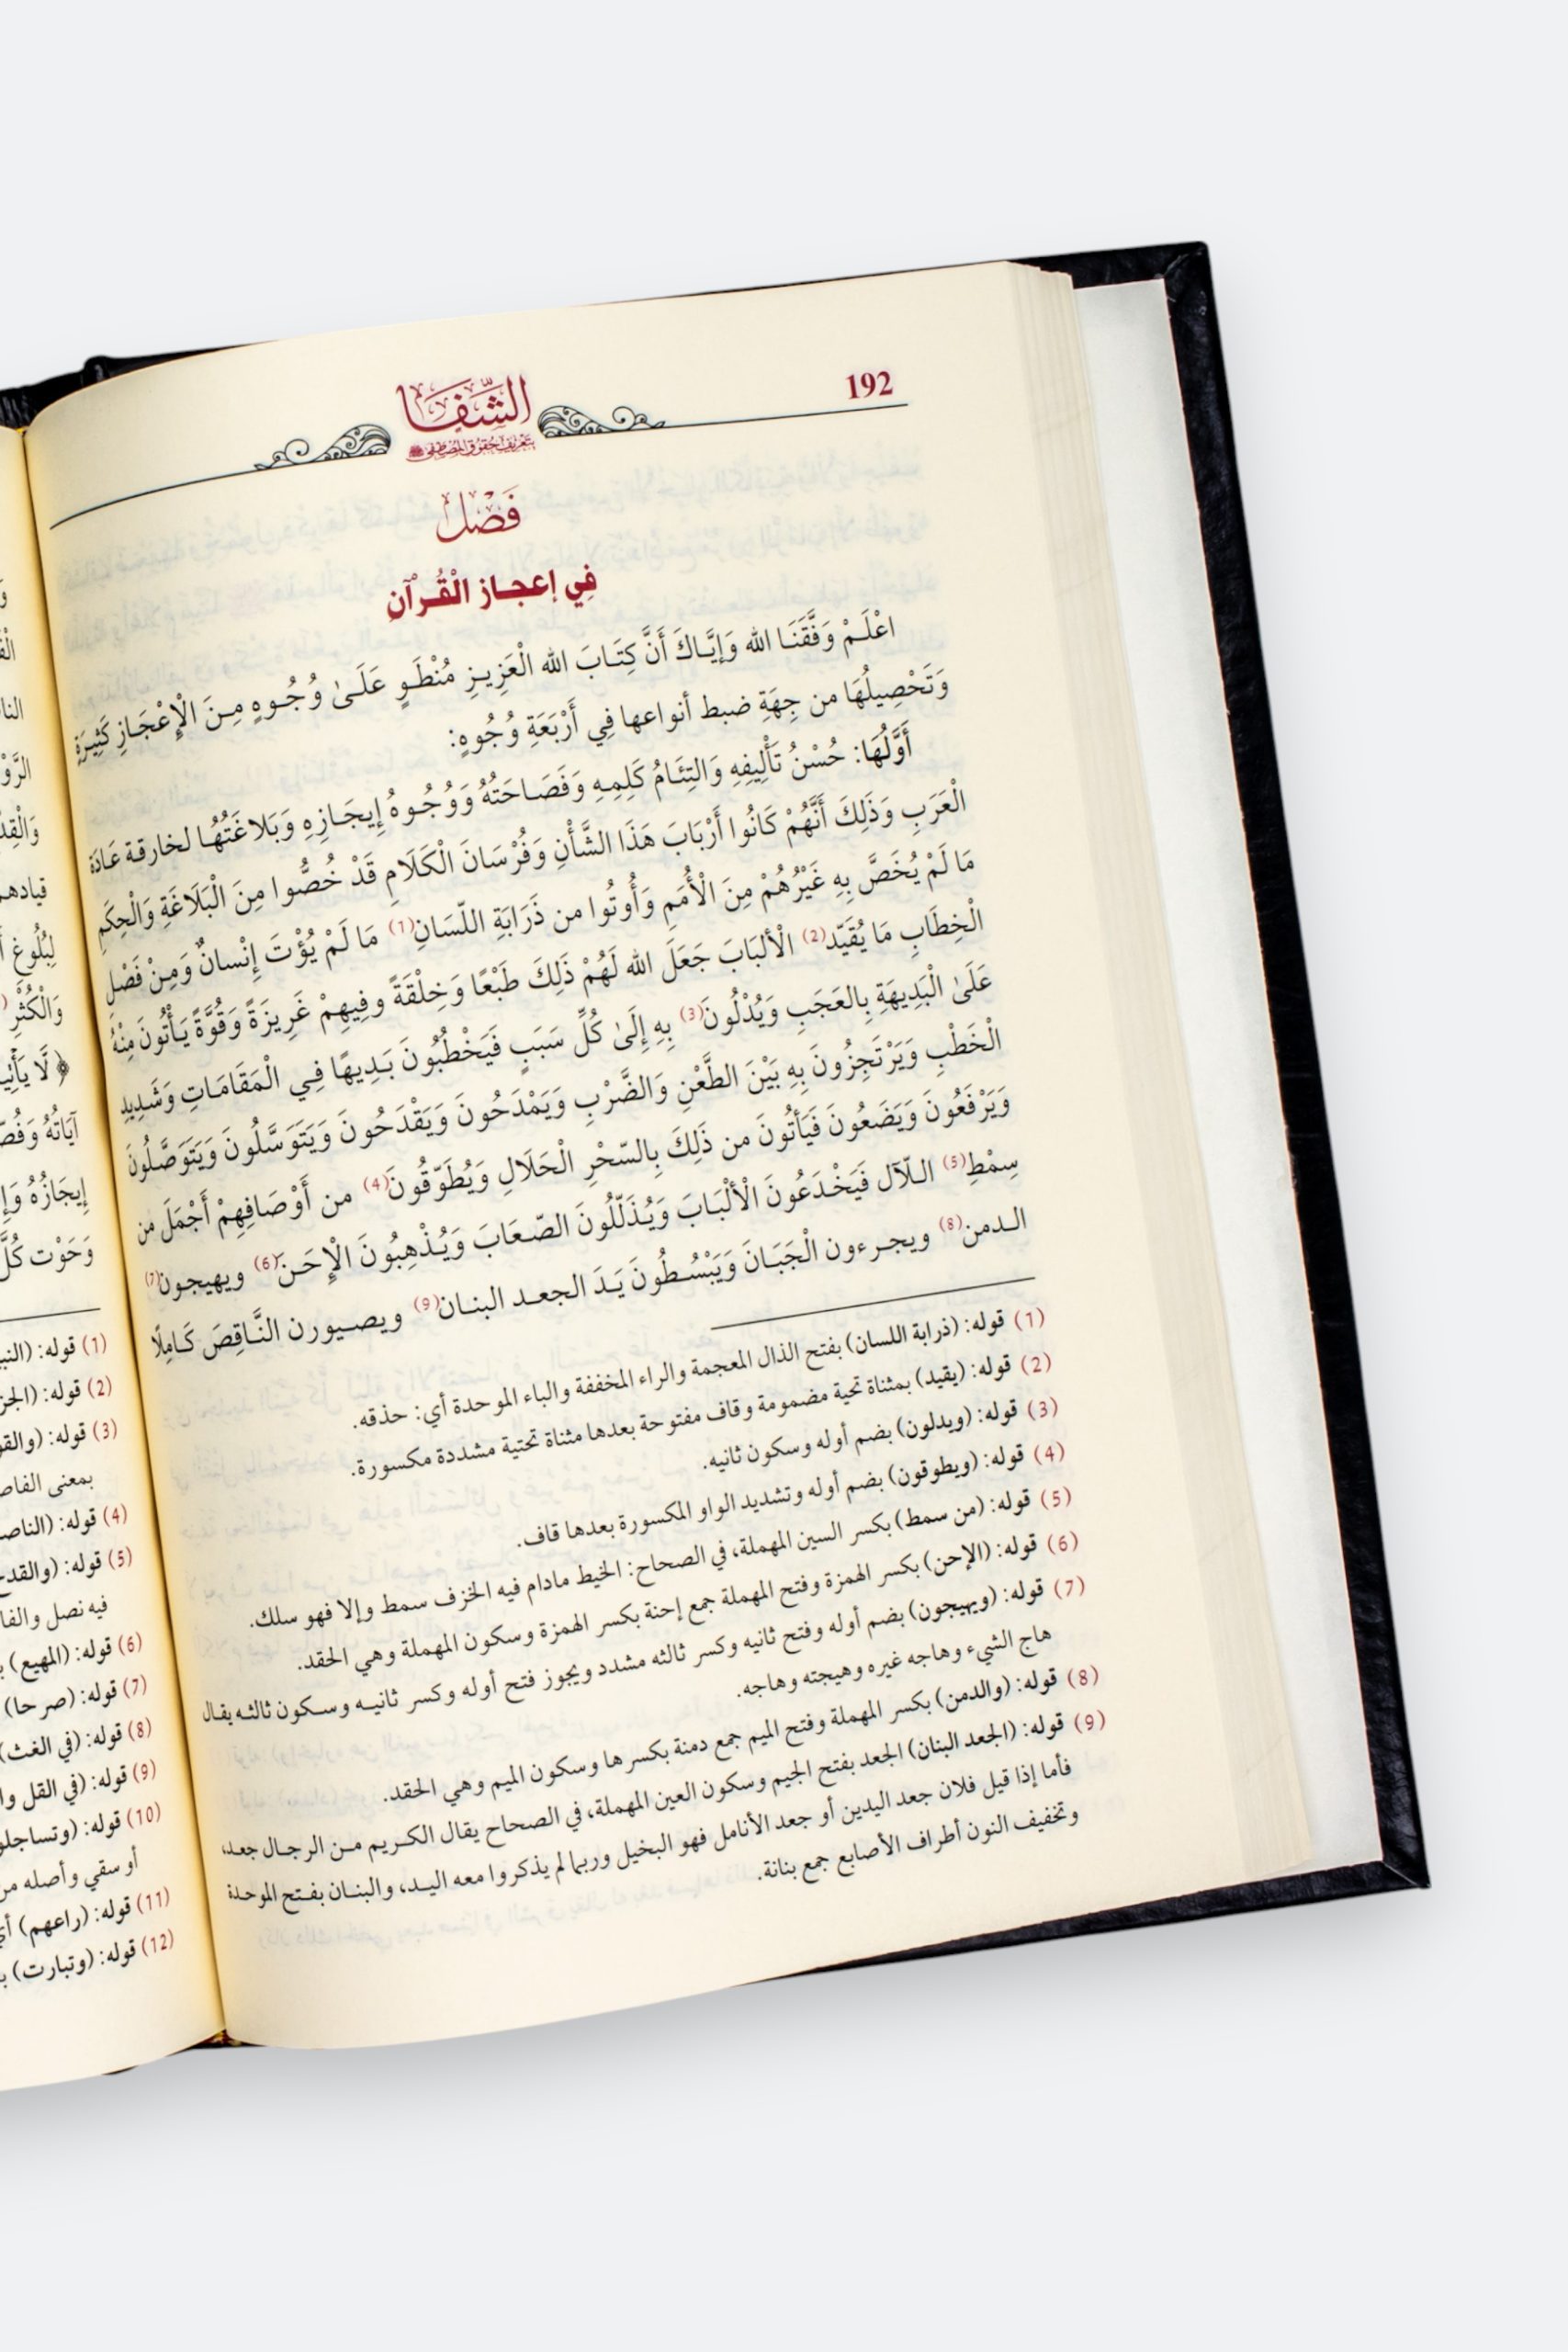 192
الشِّفَا
بتعريف حقوق المصطفى ﷺ
فَصْل
فِي إعجـاز الْقُـرْآنِ
اعْلَـمْ وَفَّقَنَـا الله وَإيَّـاكَ أَنَّ كِتَـابَ الله الْعَزِيـزِ مُنْطَـوٍ عَلَـىٰ وُجُـوهٍ مِـنَ الْإعْجَـازِ كَثِيـرَةٍ
وَتَحْصِيلُهَا من جِهَةِ ضبط أنواعها فِي أَرْبَعَةِ وُجُوهٍ:
أَوَّلُهَا: حُسْنُ تَأْلِيفِهِ وَالتِئَـامُ كَلِمِـهِ وَفَصَـاحَتُهُ وَوُجُـوهُ إِيجَـازِهِ وَبَلاغَتُهُـا لخارقـة عَـادَة
الْعَرَبِ وَذَلِكَ أَنَّهُمْ كَانُوا أَرْبَابَ هَذَا الشَّأْنِ وَفُرْسَانَ الْكَلَامِ قَدْ خُصُّوا مِنَ الْبَلَاغَةِ وَالْحِكَمِ
مَا لَمْ يُخَصَّ بِهِ غَيْرُهُمْ مِنَ الْأُمَمِ وَأُوتُوا من ذَرَابَةِ اللّسَانِ(1) مَا لَمْ يُؤْتَ إنْسانٌ وَمِنْ فَصْلِ
الْخِطَابِ مَا يُقَيّد(2) الْألبَابَ جَعَلَ الله لَهُمْ ذَلِكَ طَبْعًا وَخِلْقَةً وفِيهِمْ غَرِيزَةً وَقُوَّةً يَأْتُونَ مِنْهُ
عَلَىٰ الْبَدِيهَةِ بِالعَجَبِ وَيُدْلُونَ(3) بِهِ إِلَىٰ كُلِّ سَبَبٍ فَيَخْطُبُونَ بَـدِيهًا فِـي الْمَقَامَـاتِ وَشَـدِيدِ
الْخَطْبِ وَيَرْتَجِزُونَ بِهِ بَيْنَ الطَّعْنِ وَالضَّرْبِ وَيَمْدَحُونَ وَيَقْدَحُونَ وَيَتَوَسَّلُونَ وَيَتَوَصَّلُونَ
وَيَرْفَعُونَ وَيَضَعُونَ فَيَأتُونَ من ذَلِكَ بِالسّحْرِ الْحَلَالِ وَيُطَوّقُونَ(4) من أَوْصَافِهِمْ أَجْمَلَ من
سِمْطِ(5) الـلّآل فَيَخْـدَعُونَ الْألْبَـابَ وَيُـذَلّلُونَ الصّـعَابَ وَيُـذْهِبُونَ الْإحَـنَ(6) ويهيجـون(7)
الـدمن(8) ويجـرءون الْجَبَـانَ وَيَبْسُـطُونَ يَـدَ الجعـد البنـان(9) ويصـيورن النَّـاقِصَ كَـامِلًا
(1) قوله: (ذرابة اللسان) بفتح الذال المعجمة والراء المخففة والباء الموحدة أي: حذقه.
(2) قوله: (يقيد) بمثناة تحية مضمومة وقاف مفتوحة بعدها مثناة تحتية مشددة مكسورة.
(3) قوله: (ويدلون) بضم أوله وسكون ثانيه.
(4) قوله: (ويطوقون) بضم أوله وتشديد الواو المكسورة بعدها قاف.
(5) قوله: (من سمط) بكسر السين المهملة، في الصحاح: الخيط مادام فيه الخزف سمط وإلا فهو سلك.
(6) قوله: (الإحن) بكسر الهمزة وفتح المهملة جمع إحنة بكسر الهمزة وسكون المهملة وهي الحقد.
(7) قوله: (ويهيجون) بضم أوله وفتح ثانيه وكسر ثالثه مشدد ويجوز فتح أوله وكسر ثانيـه وسـكون ثالثـه يقال
هاج الشيء وهاجه غيره وهيجته وهاجه.
(8) قوله: (والدمن) بكسر المهملة وفتح الميم جمع دمنة بكسرها وسكون الميم وهي الحقد.
(9) قوله: (الجعد البنان) الجعد بفتح الجيم وسكون العين المهملة، في الصحاح يقال الكـريم مـن الرجـال جعـد،
فأما إذا قيل فلان جعد اليدين أو جعد الأنامل فهو البخيل وربما لم يذكروا معه اليـد، والبنـان بفـتح الموحـدة
وتخفيف النون أطراف الأصابع جمع بنانة.
قيادهم
﴿لَّا
آيَاتُهُ
إيجَازُهُ
وَحَوْت كُلَّ
(1) قوله:
(2) قوله:
(3) قوله:
بمعنى
(4) قوله:
(5) قوله:
فيه نصل
(6) قوله: (المهيع)
(7) قوله: (صرحا)
(8) قوله: (في الغث)
(9) قوله: (في القل
(10) قوله:
أو سقي وأصله
(11) قوله: (راعهم)
(12) قوله: (وتبارت)